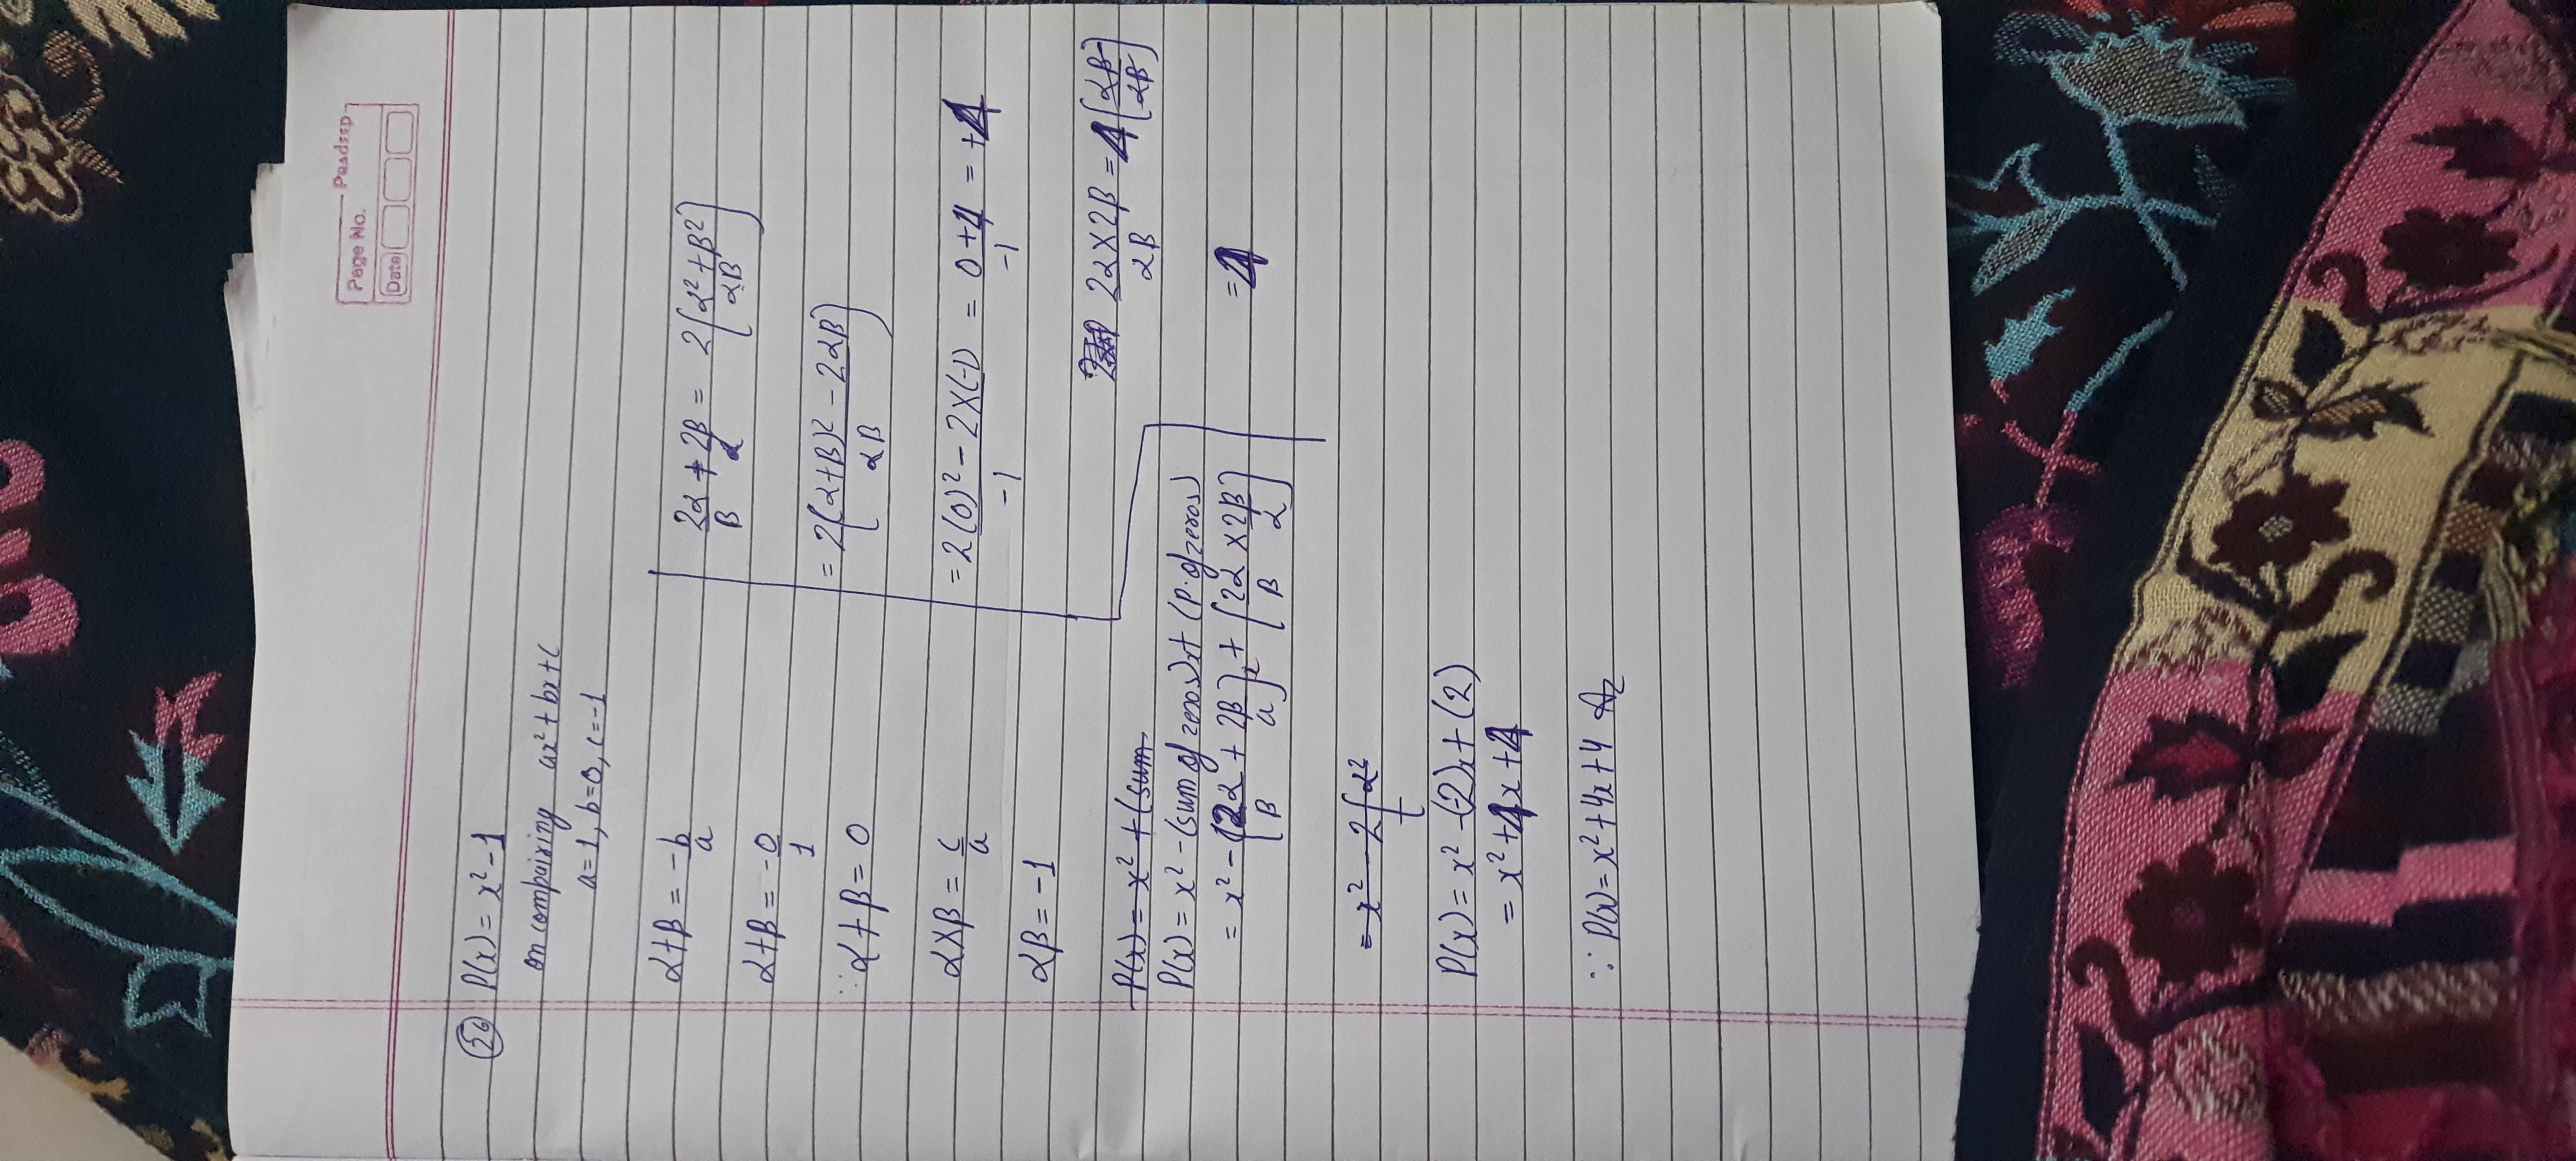 Page No.
Date
Pradeep
(26) P(x) = x² - 1
on compairing ax² + bx + c
a = 1, b = 0, c = -1
α+β = -b/a
α+β = -0/1
∴ α+β = 0
α×β = c/a
αβ = -1
2α/β + 2β/α = 2(α²+β²/αβ)
= 2((α+β)² - 2αβ/αβ)
= 2(0)² - 2×(-1)/-1 = 0+4/-1 = +4
2α×2β/αβ = 4(αβ/αβ)
= 4
P(x) = x² + (sum
P(x) = x² - (sum of zeros)x + (p. of zeros)
= x² - (2α/β + 2β/a)x + (2α/β × 2β/α)
= x² - 2(α²
P(x) = x² - (-2)x + (2)
= x² + 4x + 4
∵ P(x) = x² + 4x + 4